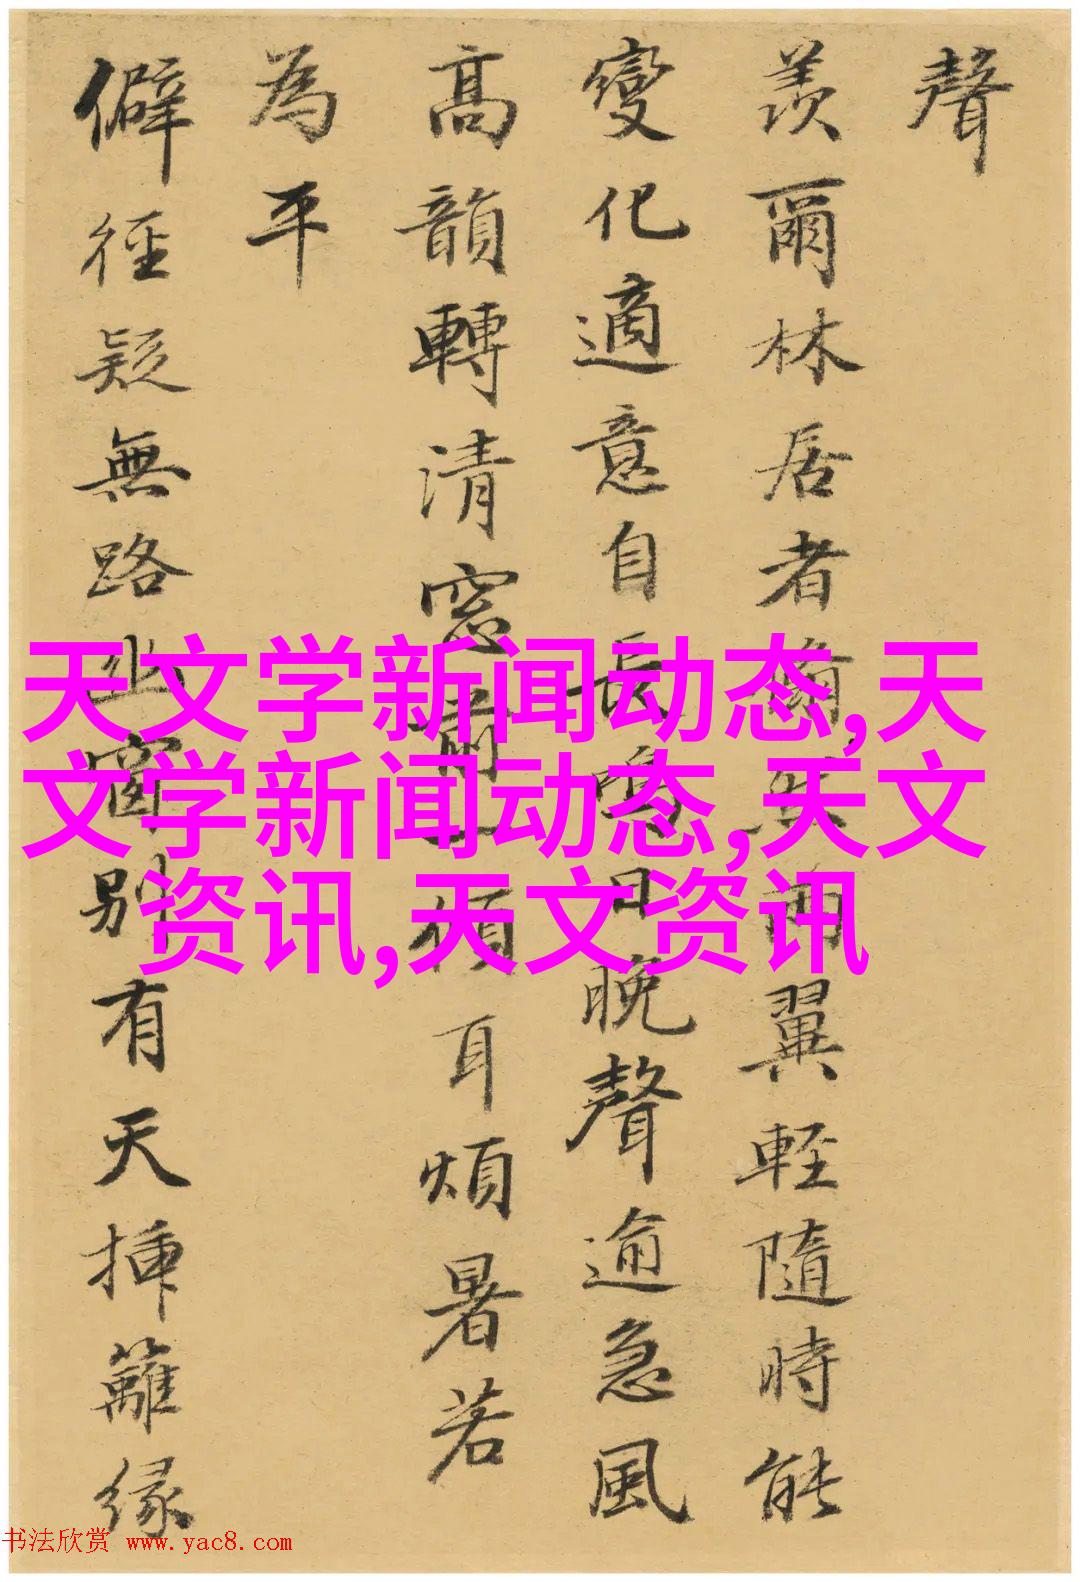 聲
羡爾林居者翛然兩翼輕隨時能
變化適意自長鳴日晚聲逾急風
高韻轉清窓前一傾耳煩暑若
為平
僻徑疑無路此窗別有天揷籬緣
天文学新闻动态,天
文学新闻动态,天文
资讯,天文资讯
书法欣赏 www.yac8.com